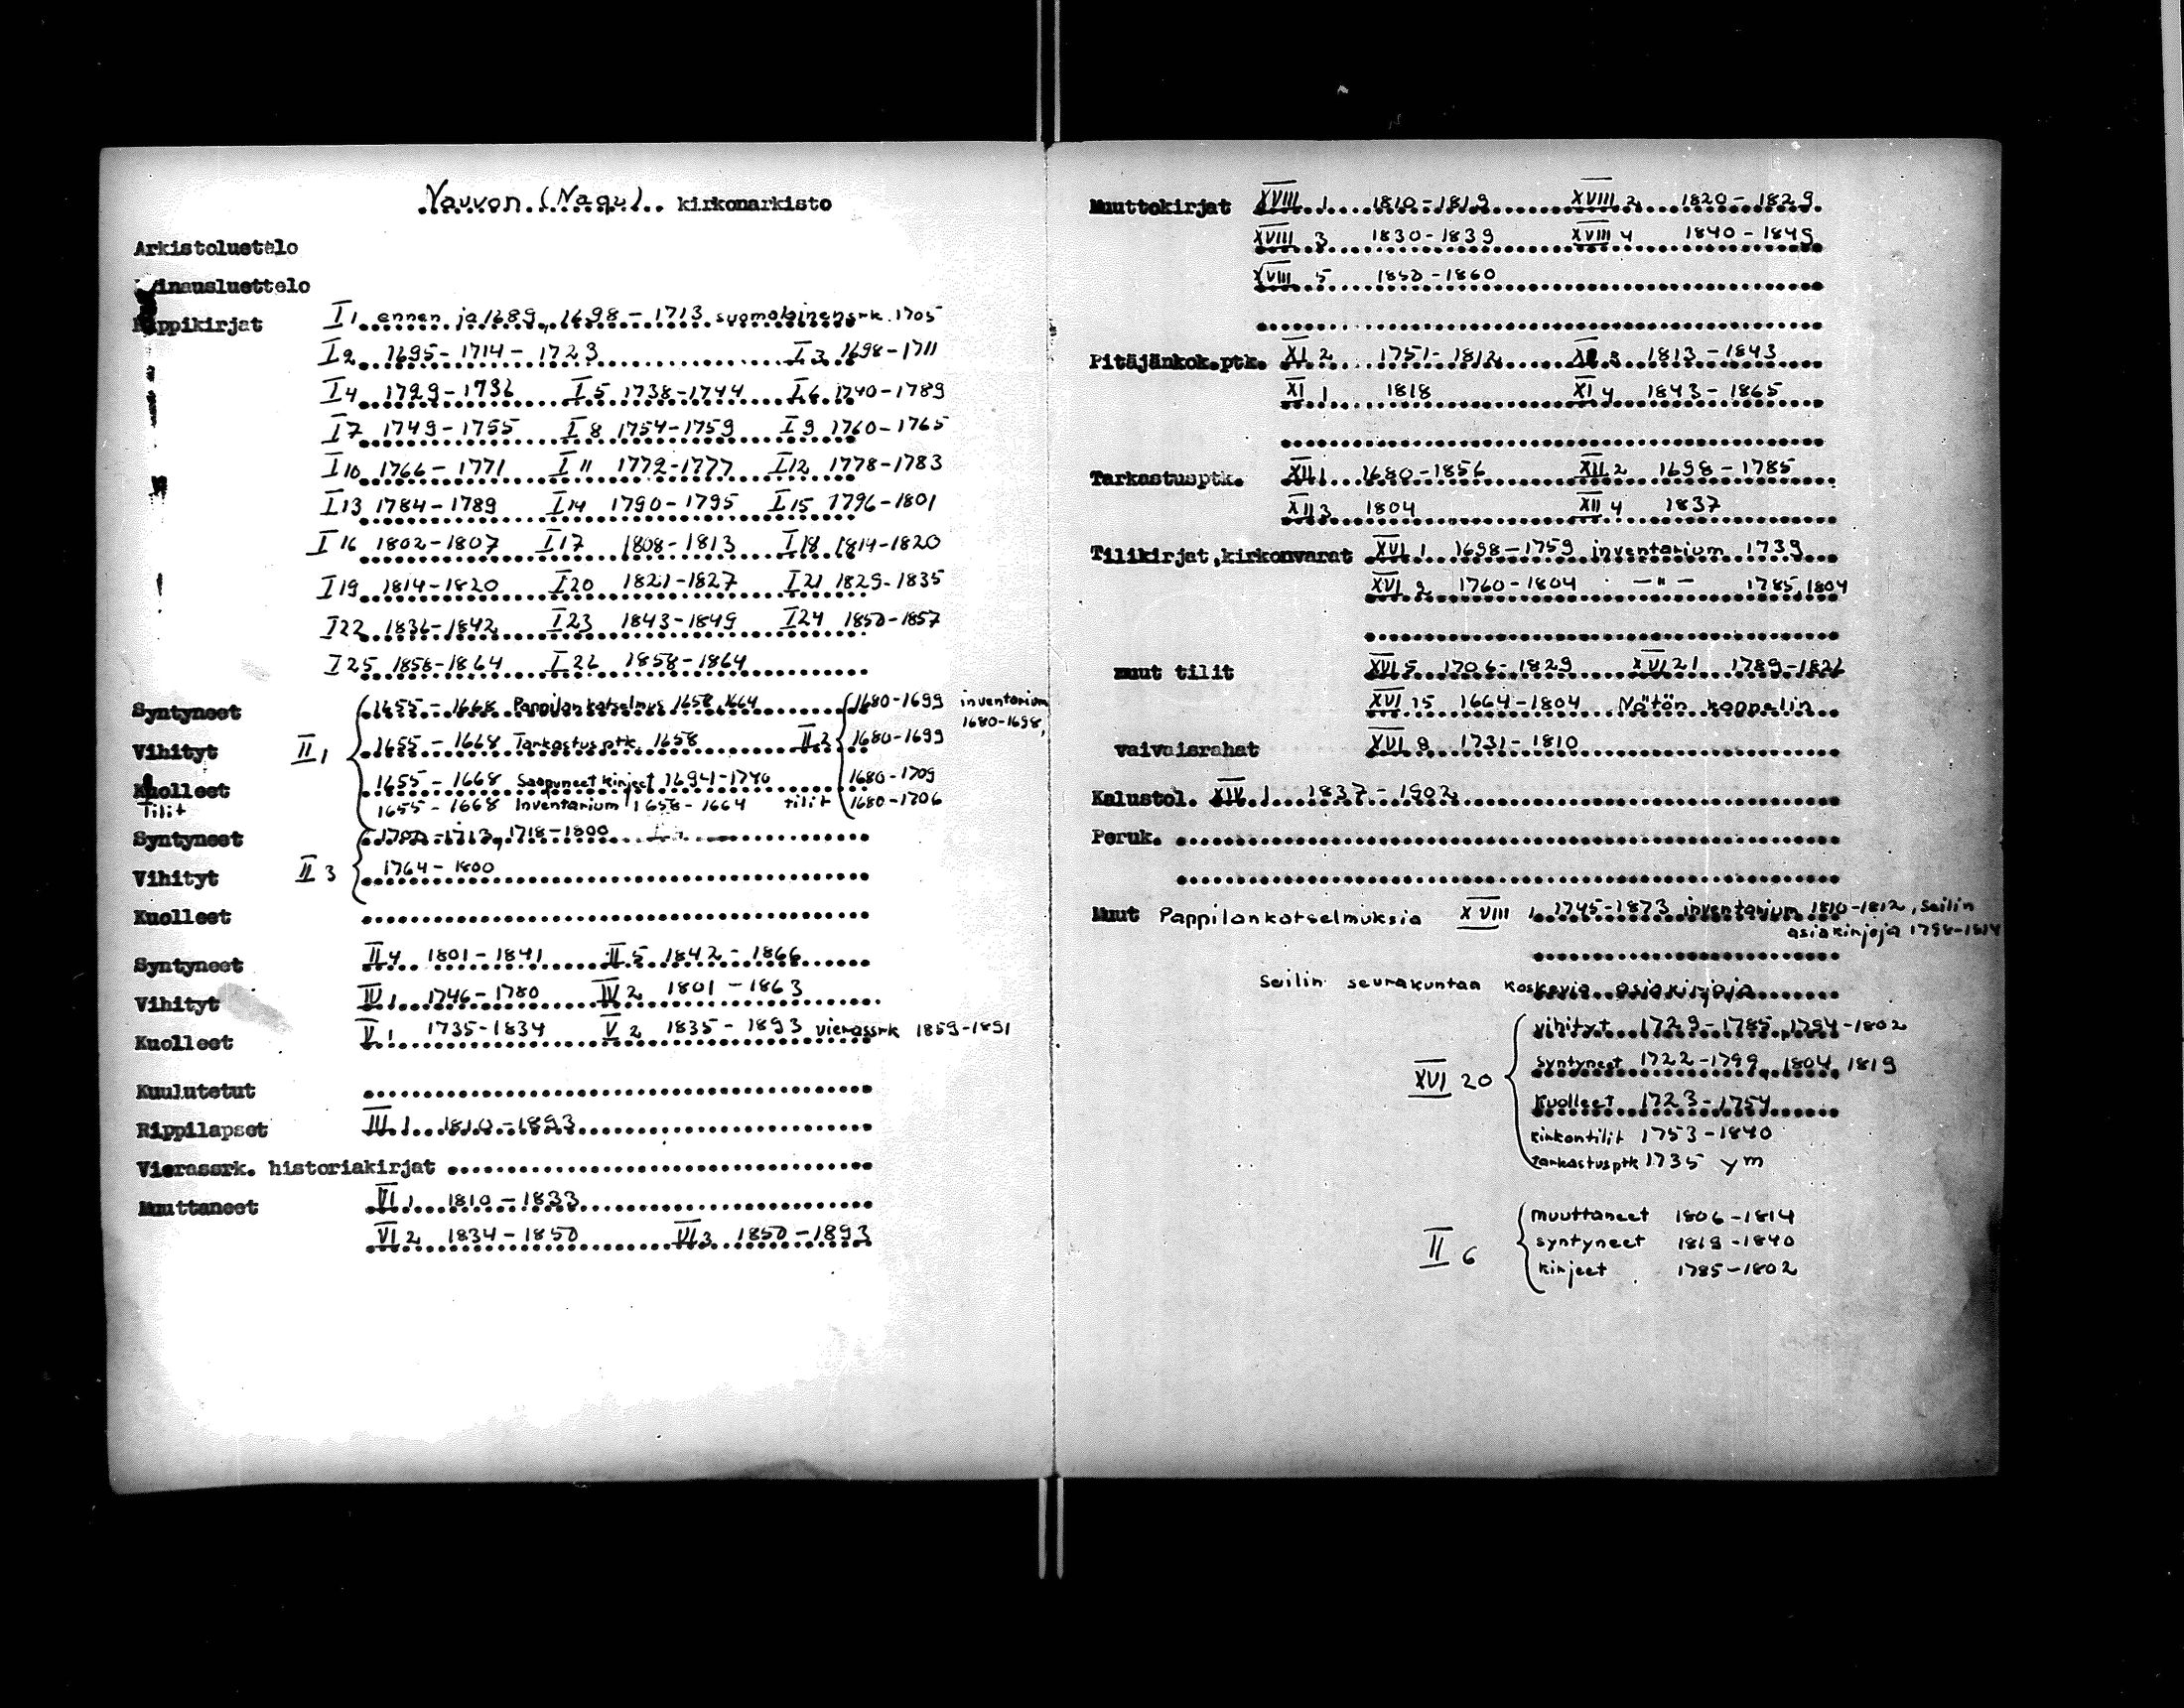 Nauvon (Nagu) kirkonarkisto
Arkistoluetelo
inausluettelo
Rippikirjat I 1 ennen ja 1689, 1698-1713 suomalainen srk. 1705
I 2 1695-1714-1723 I 3 1698-1711
I 4 1729-1736 I 5 1738-1744 I 6 1740-1789
I 7 1749-1755 I 8 1754-1759 I 9 1760-1765
I 10 1766-1771 I 11 1772-1777 I 12 1778-1783
I 13 1784-1789 I 14 1790-1795 I 15 1796-1801
I 16 1802-1807 I 17 1808-1813 I 18 1814-1820
I 19 1814-1820 I 20 1821-1827 I 21 1829-1835
I 22 1836-1842 I 23 1843-1849 I 24 1850-1857
I 25 1858-1864 I 26 1858-1864
Syntyneet 1655-1668 Pappilan katselmus 1658, 1664 1680-1699 inventarium
1680-1698,
Vihityt II 1 1655-1668 Tarkastusptk. 1658 II 2 1680-1699
Kuolleet 1655-1668 Saapuneet kirjeet 1694-1740 1680-1709
Tilit 1655-1668 Inventarium 1658-1664 tilit 1680-1706
Syntyneet 1713, 1718-1800
Vihityt II 3 1764-1800
Kuolleet
Syntyneet II 4 1801-1841 II 5 1842-1866
Vihityt IV 1 1746-1780 IV 2 1801-1863
Kuolleet V 1 1735-1834 V 2 1835-1893 vierassrk 1859-1891
Kuulutetut
Rippilapset III 1 1810-1893
Vierassrk. historiakirjat
Muuttaneet VI 1 1810-1833
VI 2 1834-1850 VI 3 1850-1893
Muuttokirjat XVIII 1 1810-1819 XVIII 2 1820-1829
XVIII 3 1830-1839 XVIII 4 1840-1849
XVIII 5 1850-1860
Pitäjänkok.ptk. XI 2 1751-1812 XI 3 1813-1843
XI 1 1818 XI 4 1843-1865
Tarkastusptk. XII 1 1680-1856 XII 2 1698-1785
XII 3 1804 XII 4 1837
Tilikirjat,kirkonvarat XVI 1 1698-1759 inventarium 1739
XVI 2 1760-1804 -"- 1785, 1804
muut tilit XVI 5 1706-1829 XVI 21 1789-1826
XVI 15 1664-1804 Nötön kappelin
vaivaisrahat XVI 8 1731-1810
Kalustol. XIV 1 1837-1902
Peruk.
Muut Pappilankatselmuksia XVIII 1 1745-1873 inventarium 1810-1812, Seilin
asiakirjoja 1798-1814
Seilin seurakuntaa koskevia asiakirjoja
vihityt 1729-1785, 1794-1802
XVI 20 syntyneet 1722-1799, 1804, 1819
Kuolleet 1723-1754
kirkontilit 1753-1840
tarkastusptk 1735 ym
muuttaneet 1806-1814
II 6 syntyneet 1819-1840
kirjeet 1785-1802